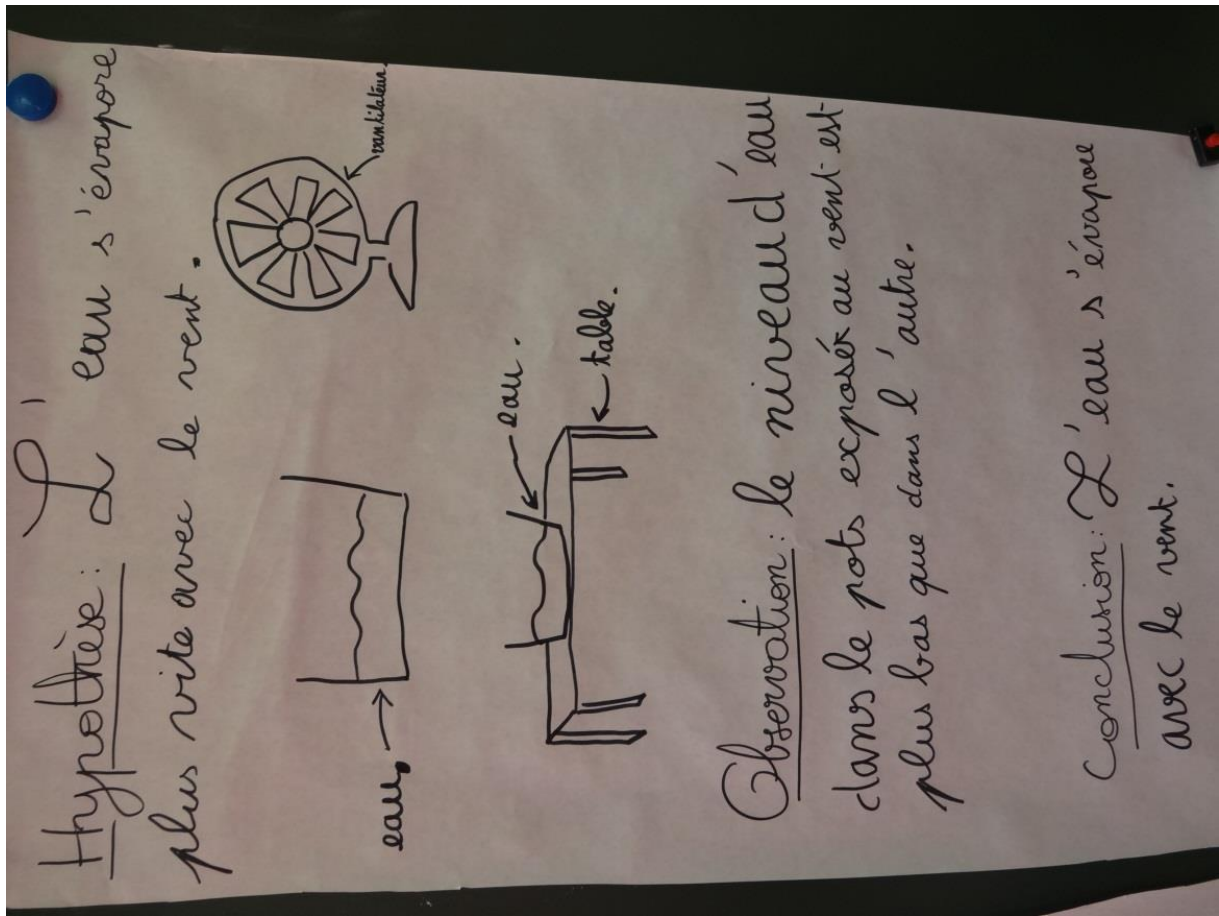 Hypothèse: L'eau s'évapore
plus vite avec le vent.
vantilateur.
eau.
eau.
table.
Observation: le niveau d'eau
dans le pots exposér au vent est
plus bas que dans l'autre.
Conclusion: L'eau s'évapore
avec le vent.